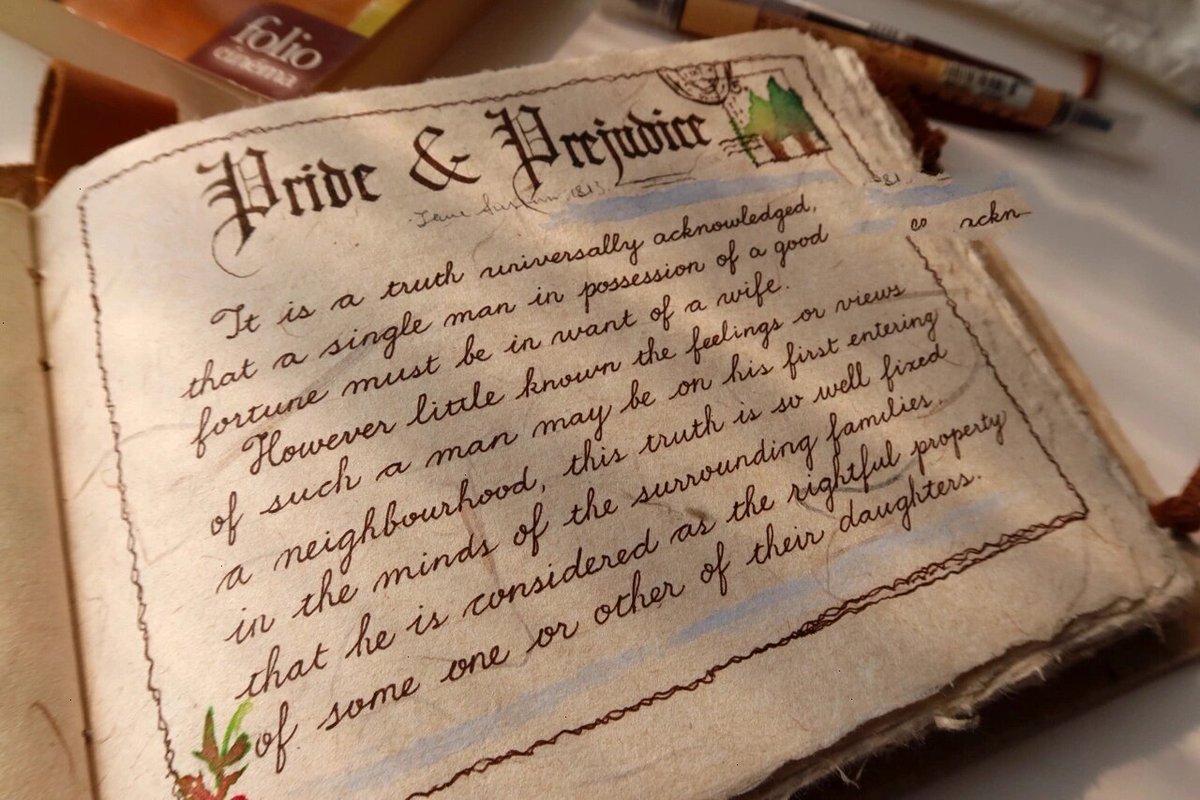 folio
cinéma
Pride & Prejudice
1813.
It is a truth universally acknowledged,
that a single man in possession of a good
fortune must be in want of a wife.
However little known the feelings or views
of such a man may be on his first entering
a neighbourhood, this truth is so well fixed
in the minds of the surrounding families,
that he is considered as the rightful property
of some one or other of their daughters.